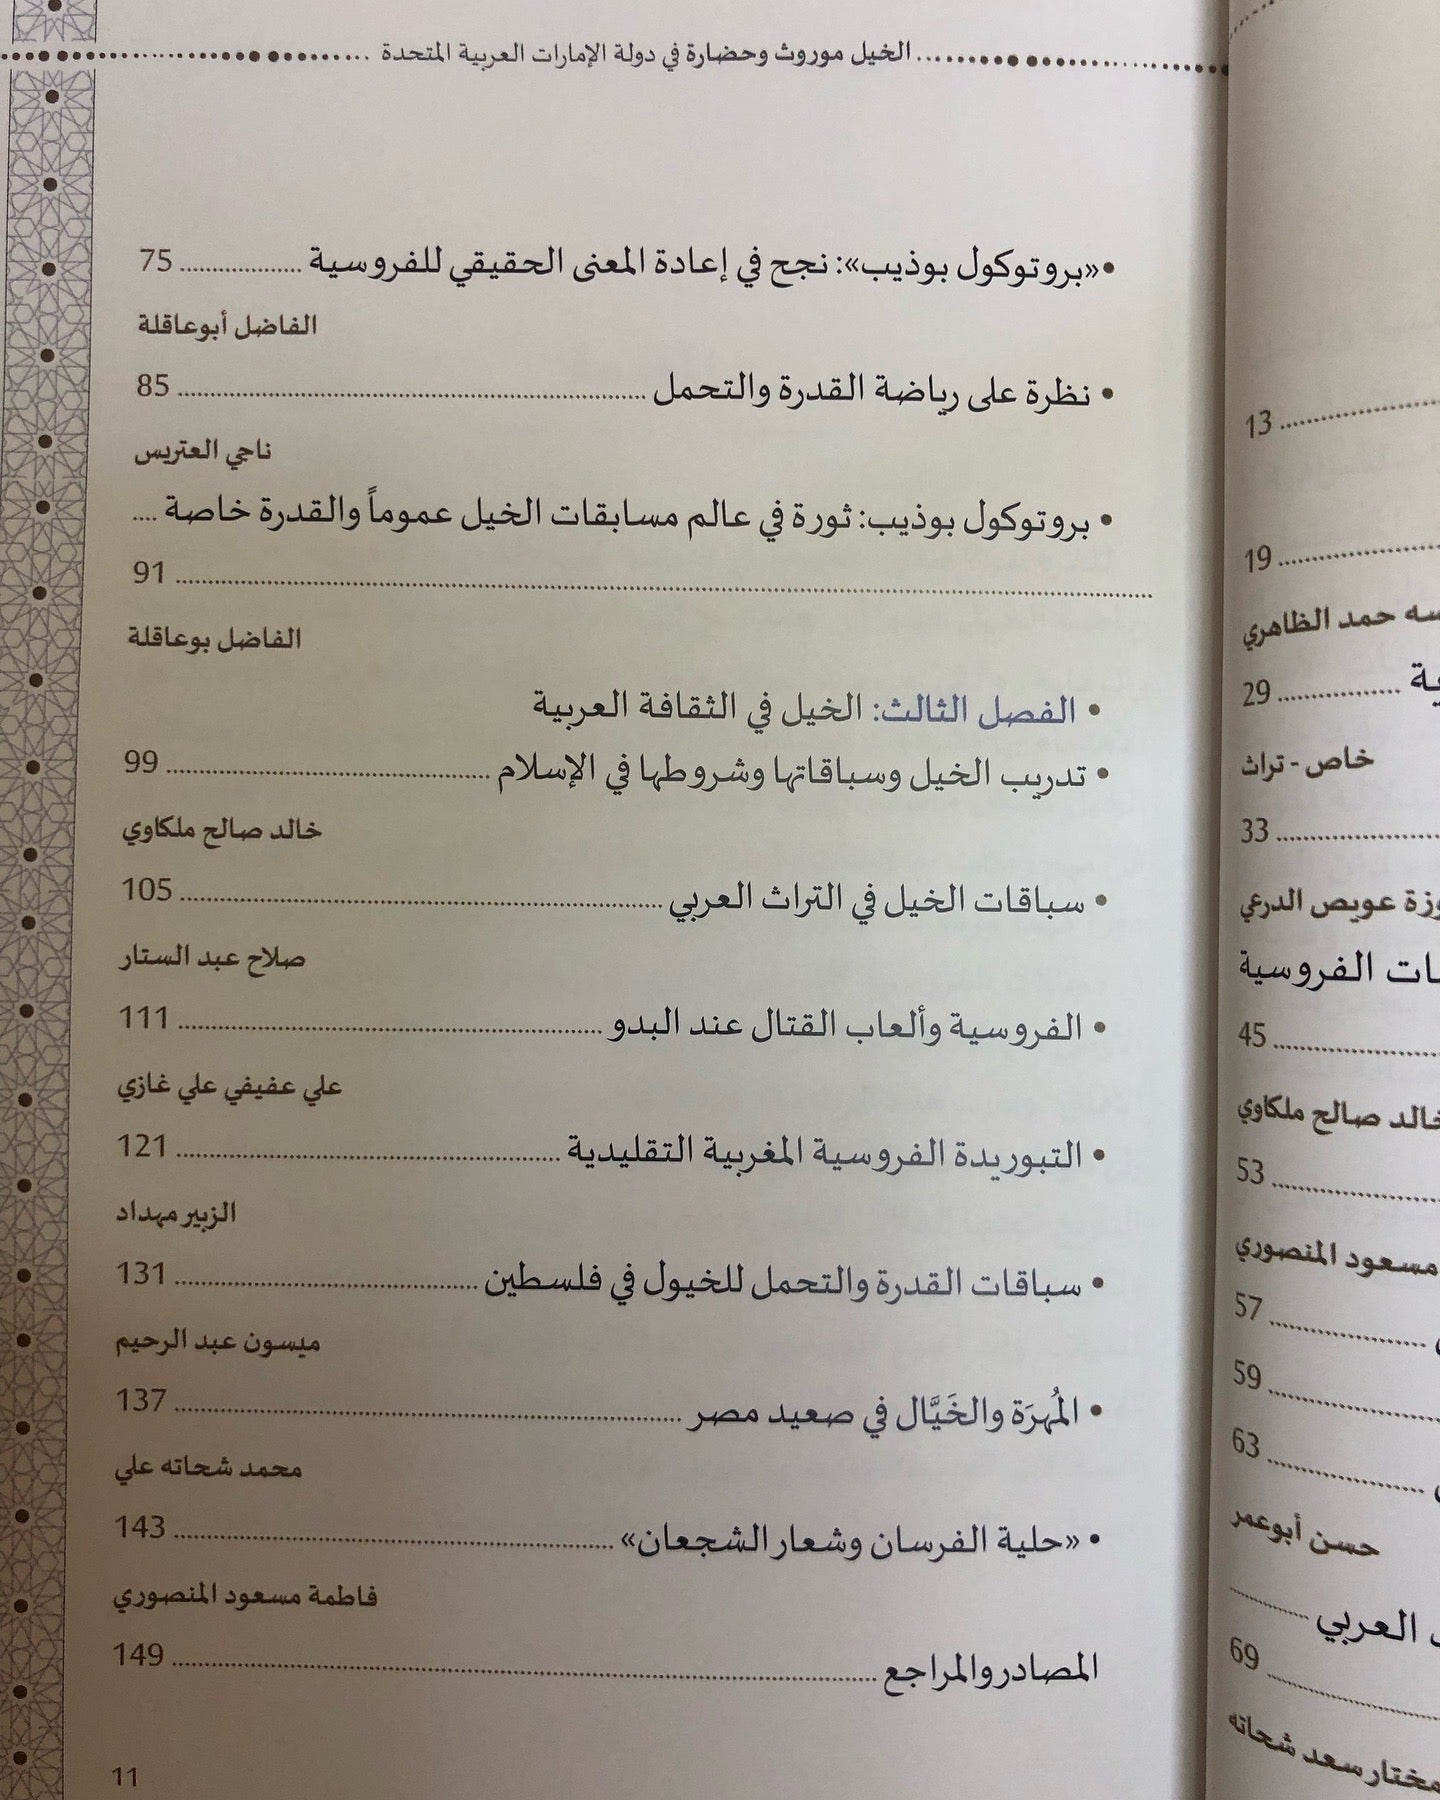 الخيل موروث وحضارة في دولة الإمارات العربية المتحدة
13
19
سه حمد الظاهري
ية 29
خاص - تراث
33
وزة عويص الدرعي
ات الفروسية
45
خالد صالح ملكاوي
53
مسعود المنصوري
57
59
63
حسن أبوعمر
العربي
69
مختار سعد شحاته
• «بروتوكول بوذيب»: نجح في إعادة المعنى الحقيقي للفروسية 75
الفاضل أبوعاقلة
• نظرة على رياضة القدرة والتحمل 85
ناجي العتريس
• بروتوكول بوذيب: ثورة في عالم مسابقات الخيل عموماً والقدرة خاصة ....
91
الفاضل بوعاقلة
• الفصل الثالث: الخيل في الثقافة العربية
• تدريب الخيل وسباقاتها وشروطها في الإسلام 99
خالد صالح ملكاوي
• سباقات الخيل في التراث العربي 105
صلاح عبد الستار
• الفروسية وألعاب القتال عند البدو 111
علي عفيفي علي غازي
• التبوريدة الفروسية المغربية التقليدية 121
الزبير مهداد
• سباقات القدرة والتحمل للخيول في فلسطين 131
ميسون عبد الرحيم
• المُهرَة والخَيَّال في صعيد مصر 137
محمد شحاته علي
• «حلية الفرسان وشعار الشجعان» 143
فاطمة مسعود المنصوري
المصادر والمراجع 149
11